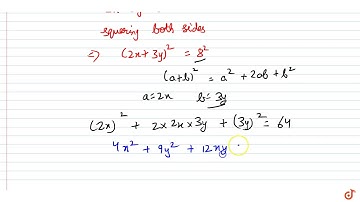 squering both sides
⇒ (2x+3y)² = 8²
(a+b)² = a² + 2ab + b²
a=2x b=3y
(2x)² + 2×2x×3y + (3y)² = 64
4x² + 9y² + 12xy